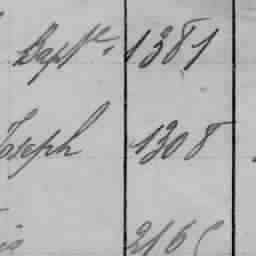 Bapt^te. 1381
Joseph 1308
is 216